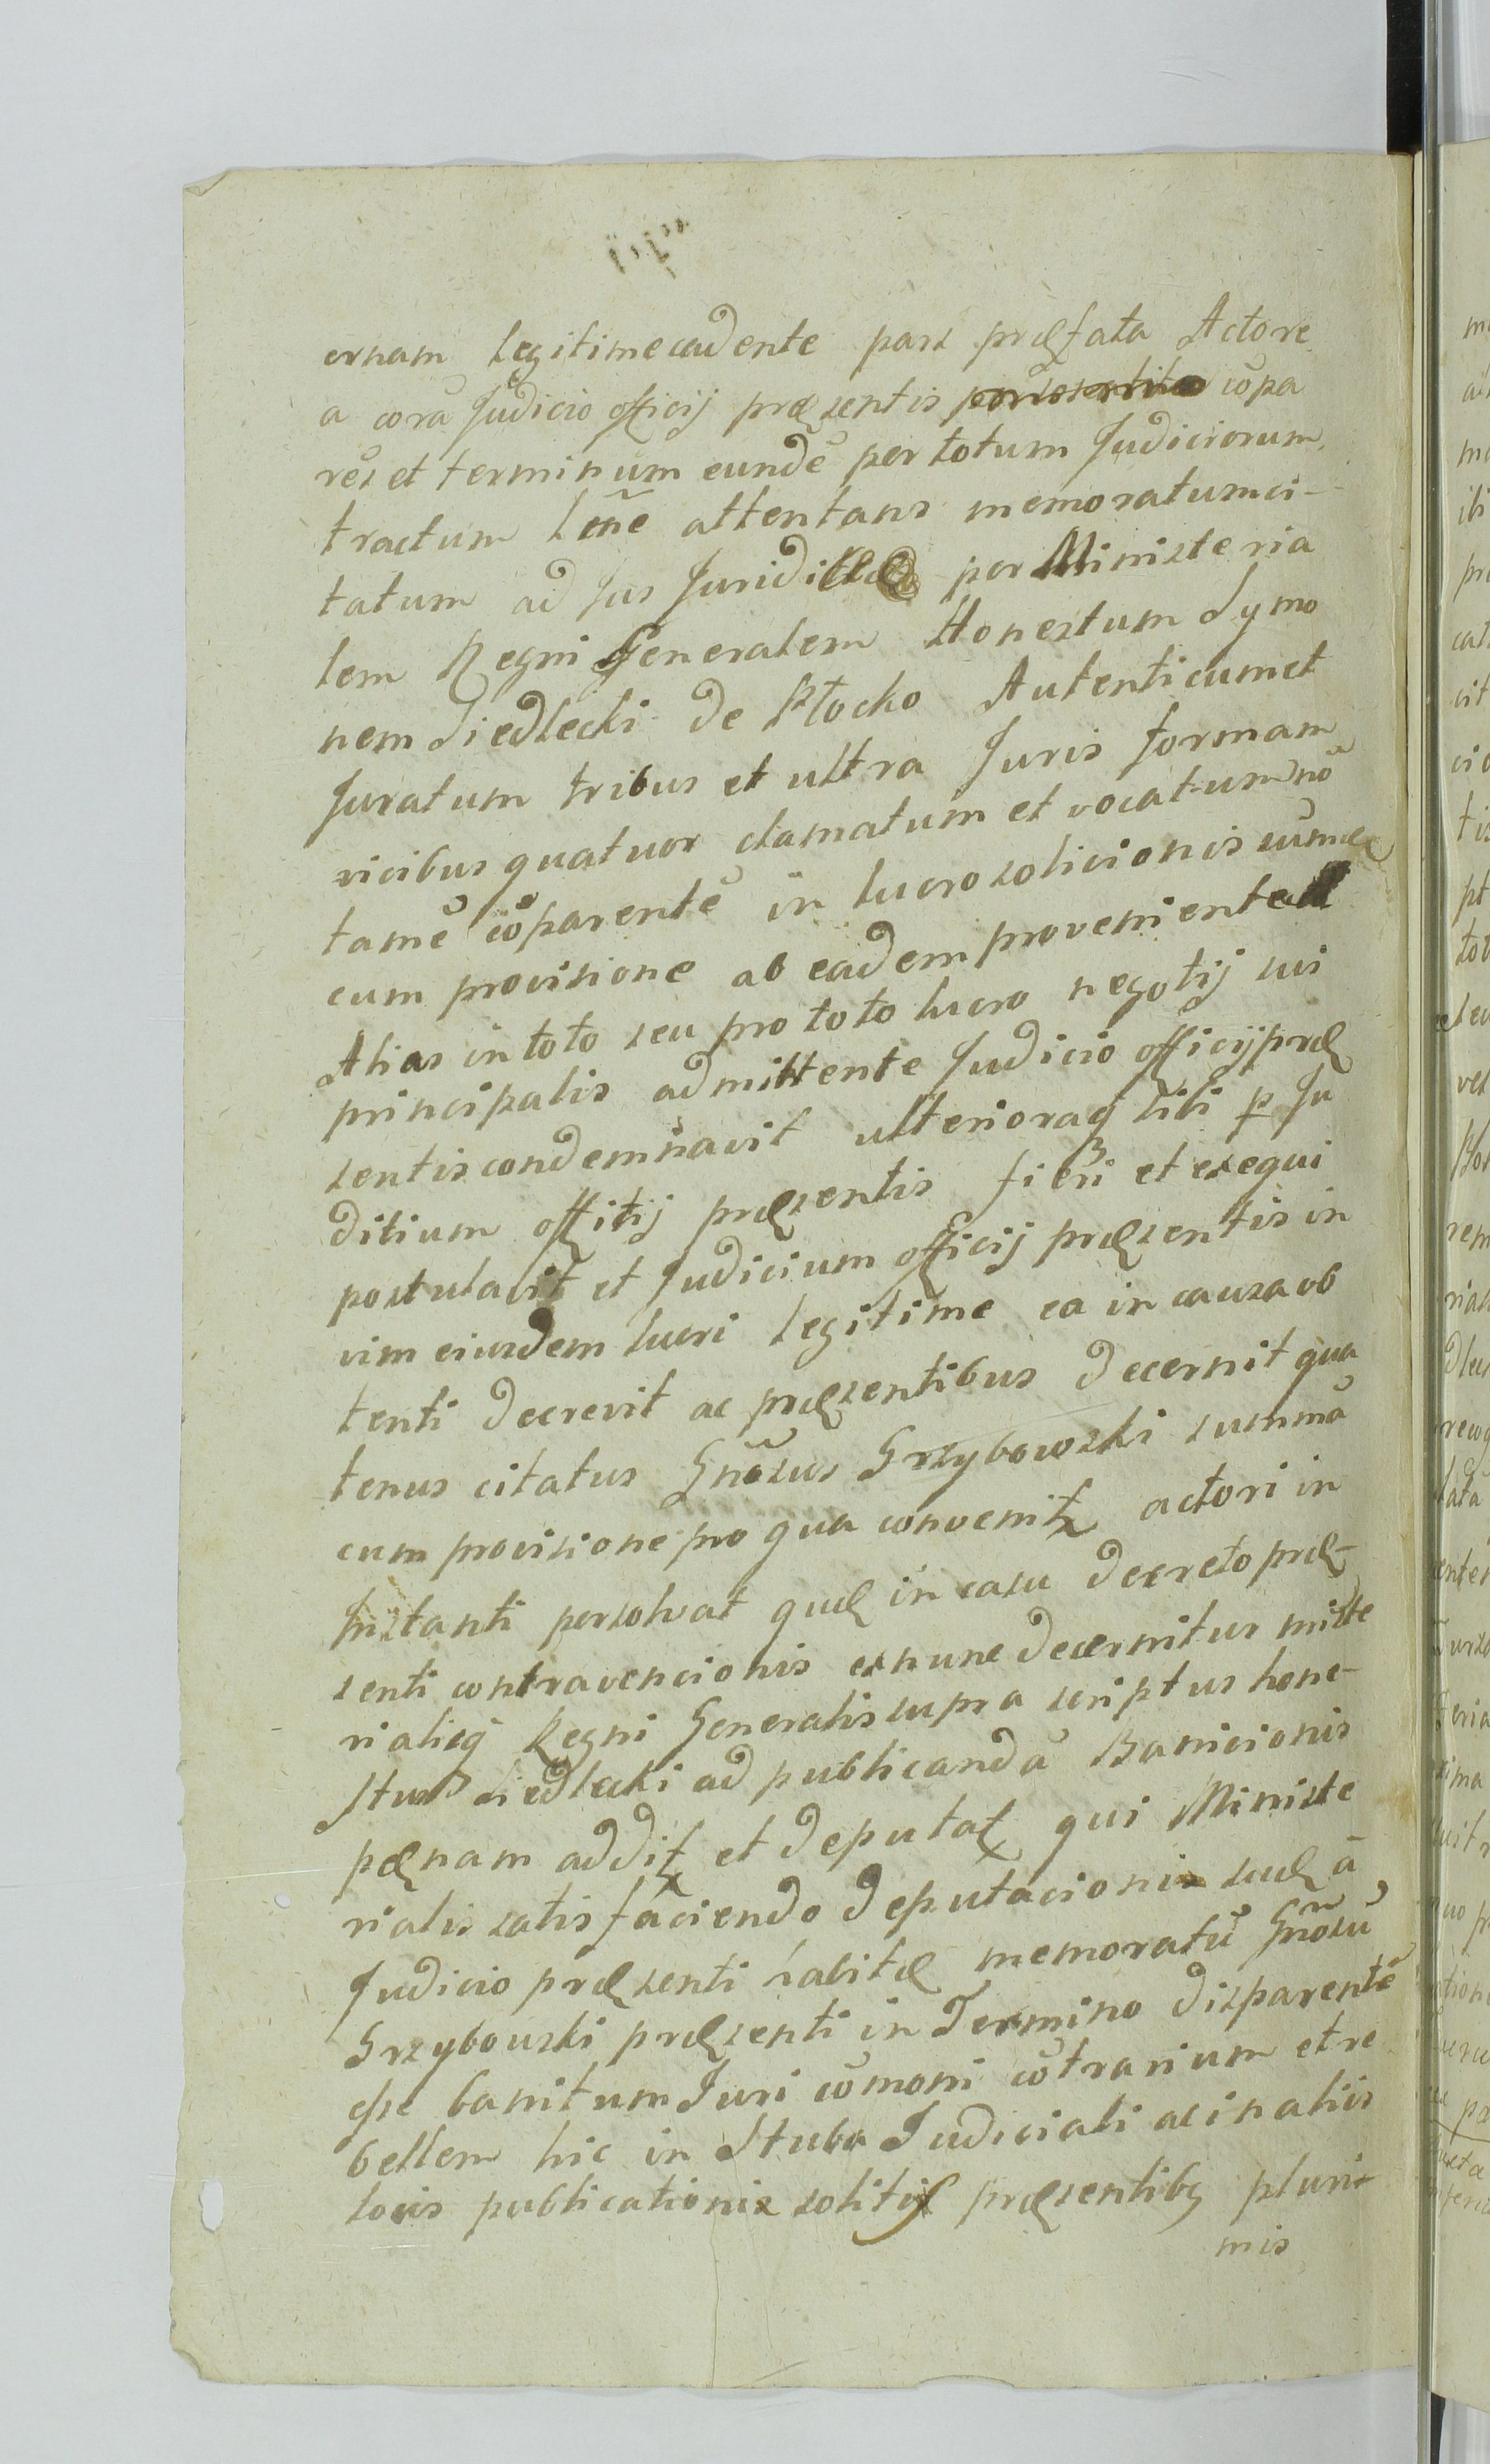 ernam legitime cadente pars præfata Actore
a corã Judicio officij præsentis cõpa
rẽs et terminum eundẽ per totum Judiciorum
tractum lñe attentans memoratum ci-
tatum ad Jus per Ministeria
lem Regni Generalem Honestum Symo
nem Siedlecki de Płocko Autenticum et
Juratum tribus et ultra Juris formam
vicibus quatuor clamatum et vocatum nõ
tamẽ cõparentẽ in lucro solicionis sumæ
cum provisione ab eadem proveniente
Alias in toto seu pro toto lucro negotij sui
principalis admittente Judicio officij præ
sentis condemnavit ulterioraq sibi p Ju
ditium offitij præsentis fieri et exequi
postulavit et Judicium officij præsentis in
vim eiusdem lucri legitime ea in causa ob
tenti decrevit ac præsentibus decernit qua
tenus citatus Gñosus Grzybowski summã
cum provisione pro qua convenit actori in
stanti persolvat quæ in casu decreto præ-
senti contravencionis ex nunc decernitur miste
rialisq Regni Generalis supra scriptus hone-
stus Siedlecki ad publicandã Banicionis
pænam addit et deputat qui Ministe
rialis satisfaciendo deputacionis suæ ã
Judicio præsenti habitæ memoratũ Gñosũ
Grzybowski præsenti in Termino disparentẽ
esse banitum Juri cõmoni cõtrarium et re
bellem hic in Stuba Judiciali ac in aliis
locis publicationis solitis præsentibq pluri-
mis